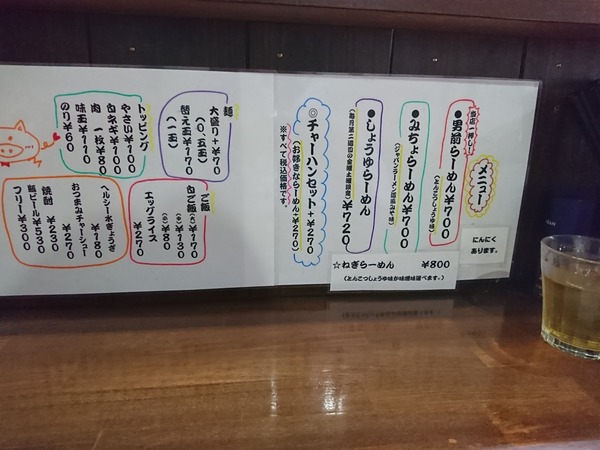 メニュー
当店一押し!
●男前らーめん¥700
(とんこつしょうゆ味)
●みちょらーめん¥700
●しょうゆらーめん ¥720
◎チャーハンセット+¥270
(お好きならーめん+¥270)
※すべて税込価格です。
にんにく
あります。
☆ねぎらーめん ¥800
(とんこつしょうゆ味か味噌味選べます。)
麺
大盛り+¥70
(0、5玉)
替え玉¥170
(一玉)
トッピング
やさい¥100
白ネギ¥100
肉 一枚¥80
味玉¥110
のり¥60
ご飯
白ご飯
(大)¥170
(中)¥130
(小)¥80
エッグライス
¥270
ヘルシー水ぎょうざ
¥180
おつまみチャーシュー
¥270
焼酎 ¥230
瓶ビール¥530
フリー¥300